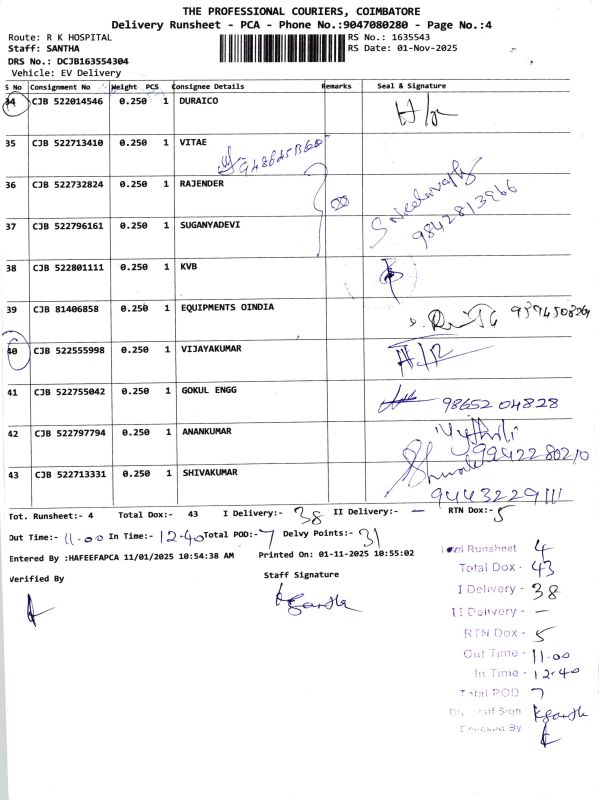 THE PROFESSIONAL COURIERS, COIMBATORE
Delivery Runsheet - PCA - Phone No.:9047080280 - Page No.:4
Route: R K HOSPITAL
RS No.: 1635543
Staff: SANTHA
RS Date: 01-Nov-2025
DRS No.: DCJB163554304
Vehicle: EV Delivery
S No Consignment No Weight PCS Consignee Details Remarks Seal & Signature
34 CJB 522014546 0.250 1 DURAICO
35 CJB 522713410 0.250 1 VITAE
36 CJB 522732824 0.250 1 RAJENDER
37 CJB 522796161 0.250 1 SUGANYADEVI 9842813966
38 CJB 522801111 0.250 1 KVB
39 CJB 81406858 0.250 1 EQUIPMENTS OINDIA
40 CJB 522555998 0.250 1 VIJAYAKUMAR
41 CJB 522755042 0.250 1 GOKUL ENGG 98652 04828
42 CJB 522797794 0.250 1 ANANKUMAR 9942280210
43 CJB 522713331 0.250 1 SHIVAKUMAR 9443229111
Tot. Runsheet:- 4 Total Dox:- 43 I Delivery:- 38 II Delivery:- — RTN Dox:- 5
Out Time:- 11.00 In Time:- 12.40 Total POD:- 7 Delvy Points:- 31
Entered By :HAFEEFAPCA 11/01/2025 10:54:38 AM Printed On: 01-11-2025 10:55:02
Verified By Staff Signature
Total Runsheet 4
Total Dox - 43
I Delivery - 38
II Delivery - —
RTN Dox - 5
Out Time - 11.00
In Time - 12.40
Total POD 7
Staff Sign
Checked By